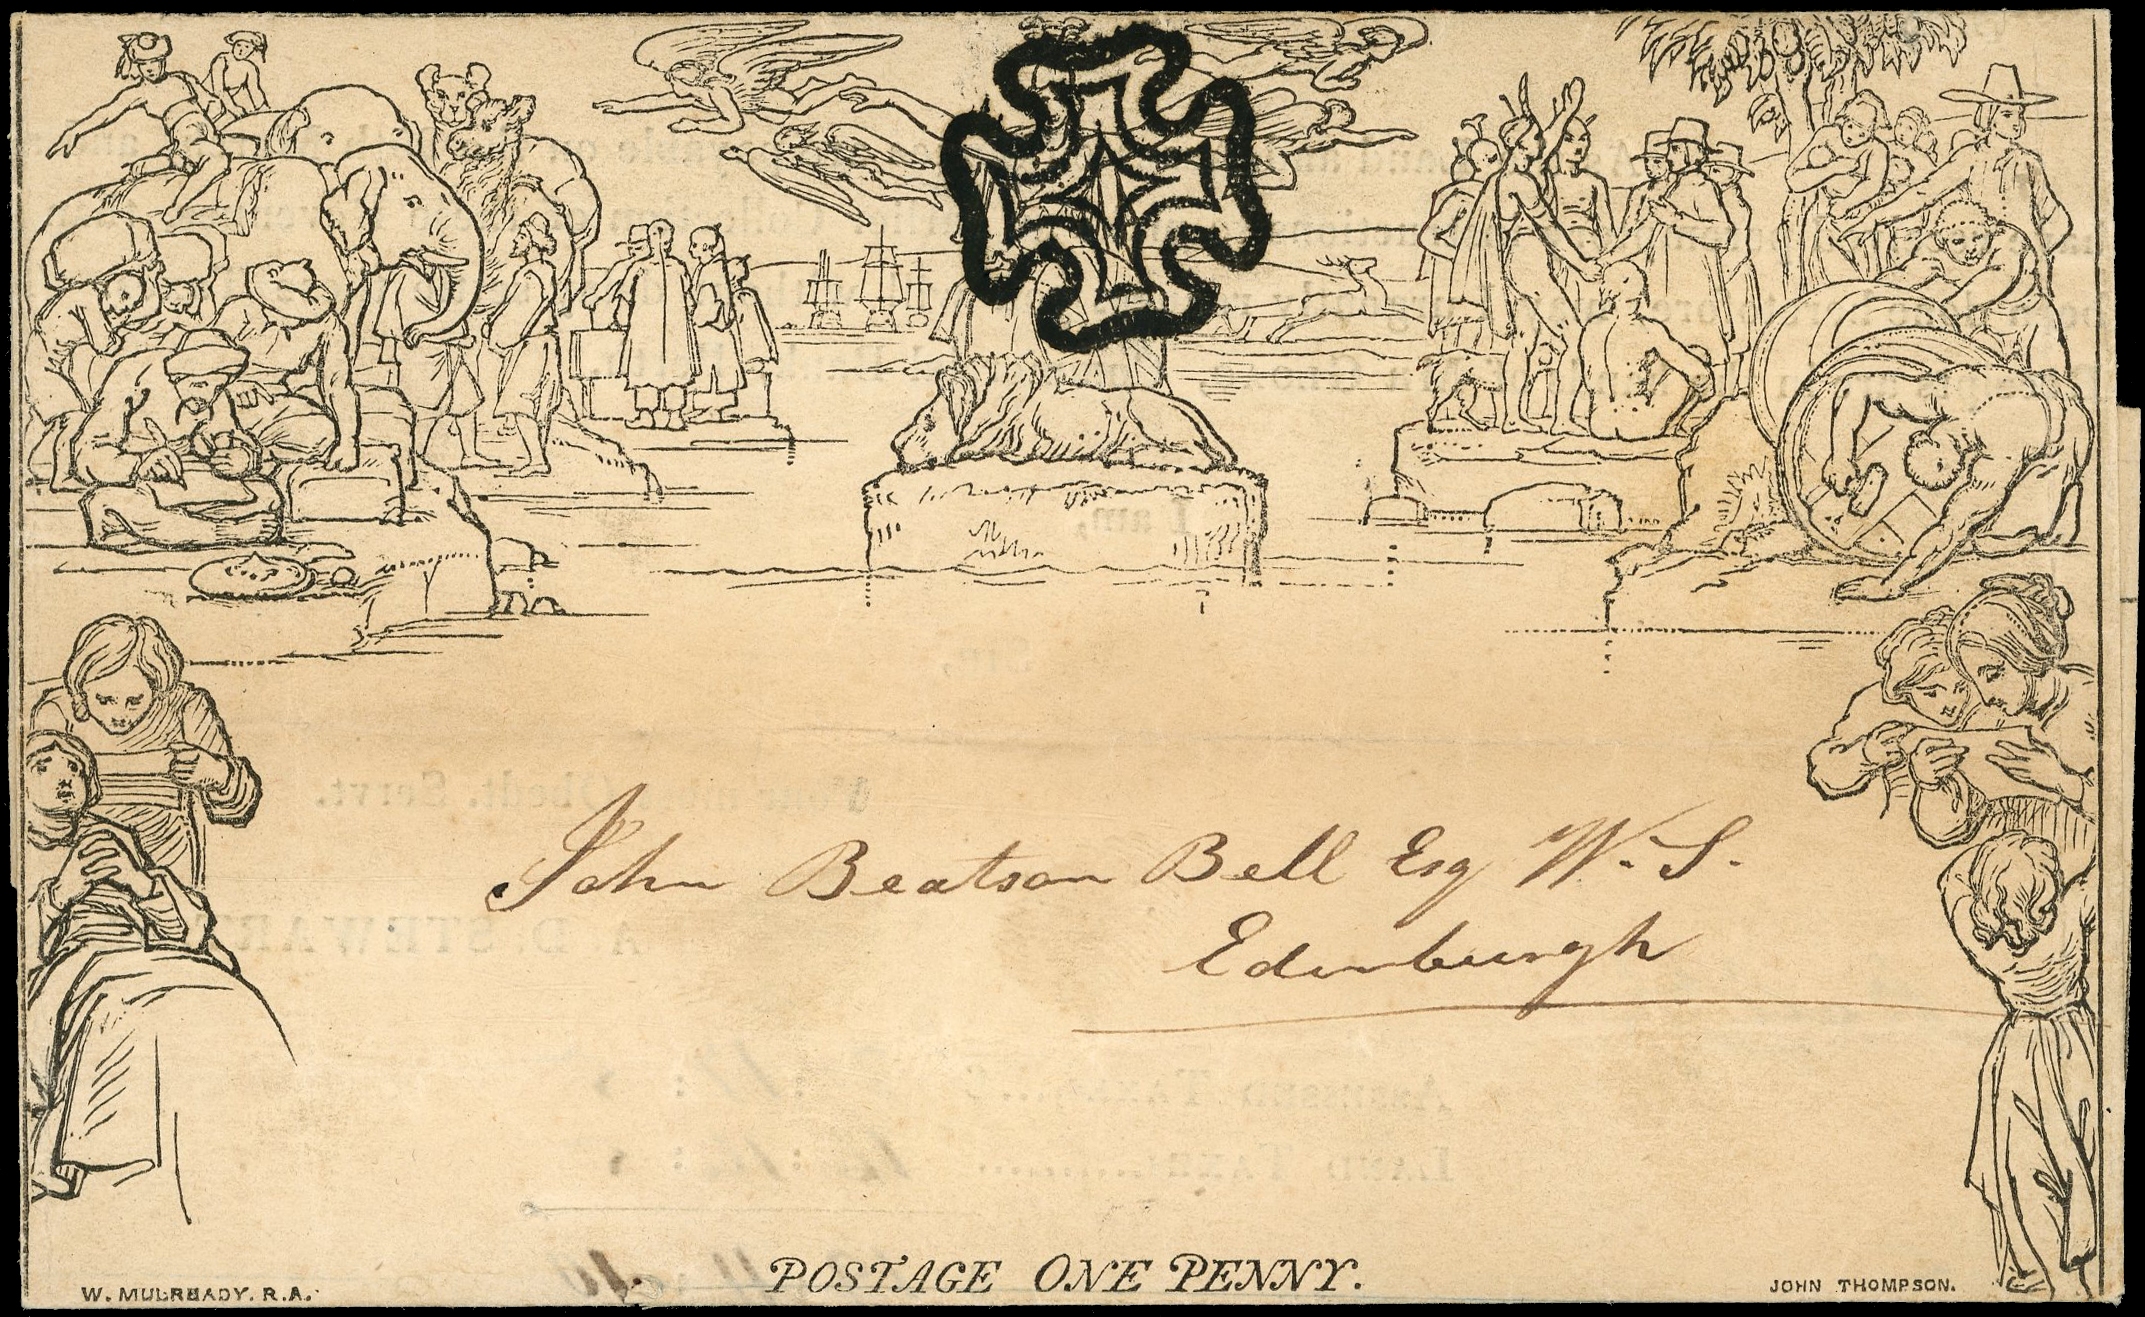 John Beatson Bell Esq W. S.
Edinburgh
POSTAGE ONE PENNY.
W. MULREADY. R.A.
JOHN THOMPSON.